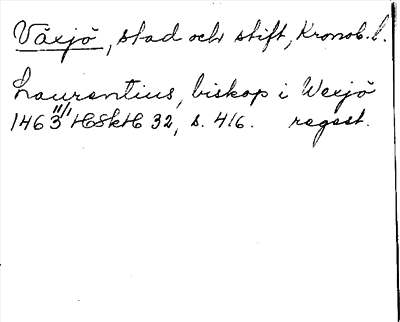 Växjö, stad och stift, Kronob. l.
Laurentius, biskop i Wexjö
1463 11/1 HSkH 32, s. 416. regest.